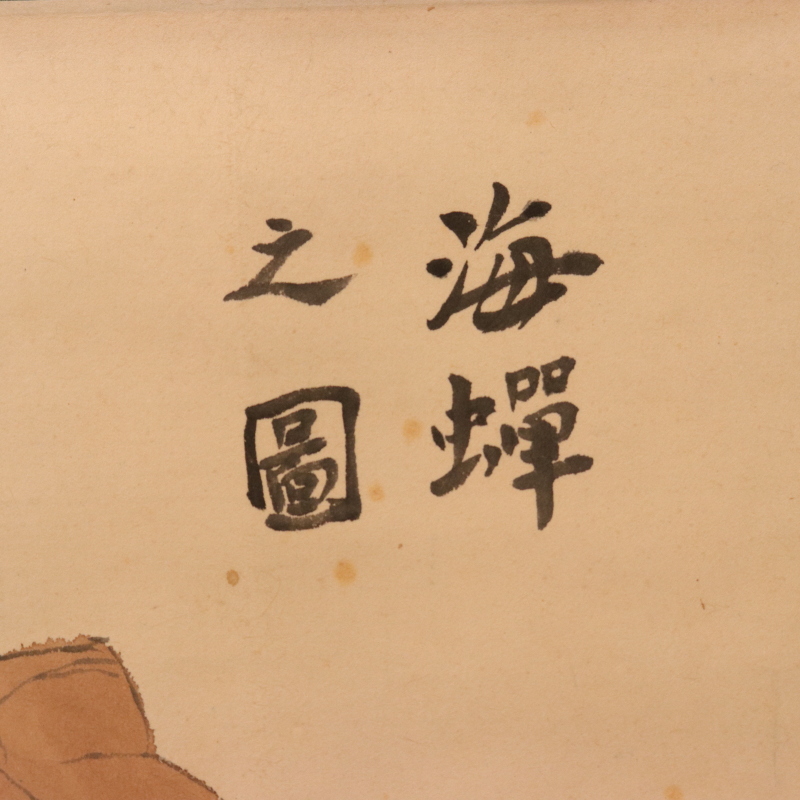 海蟬
之圖